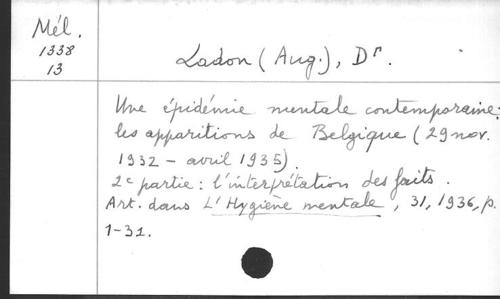 Mél.
1338
13
Ladon (Aug.), Dr.
Une épidémie mentale contemporaine:
les apparitions de Belgique (29 nov.
1932 - avril 1935).
2e partie: l'interprétation des faits.
Art. dans L'Hygiène mentale, 31, 1936, p.
1-31.